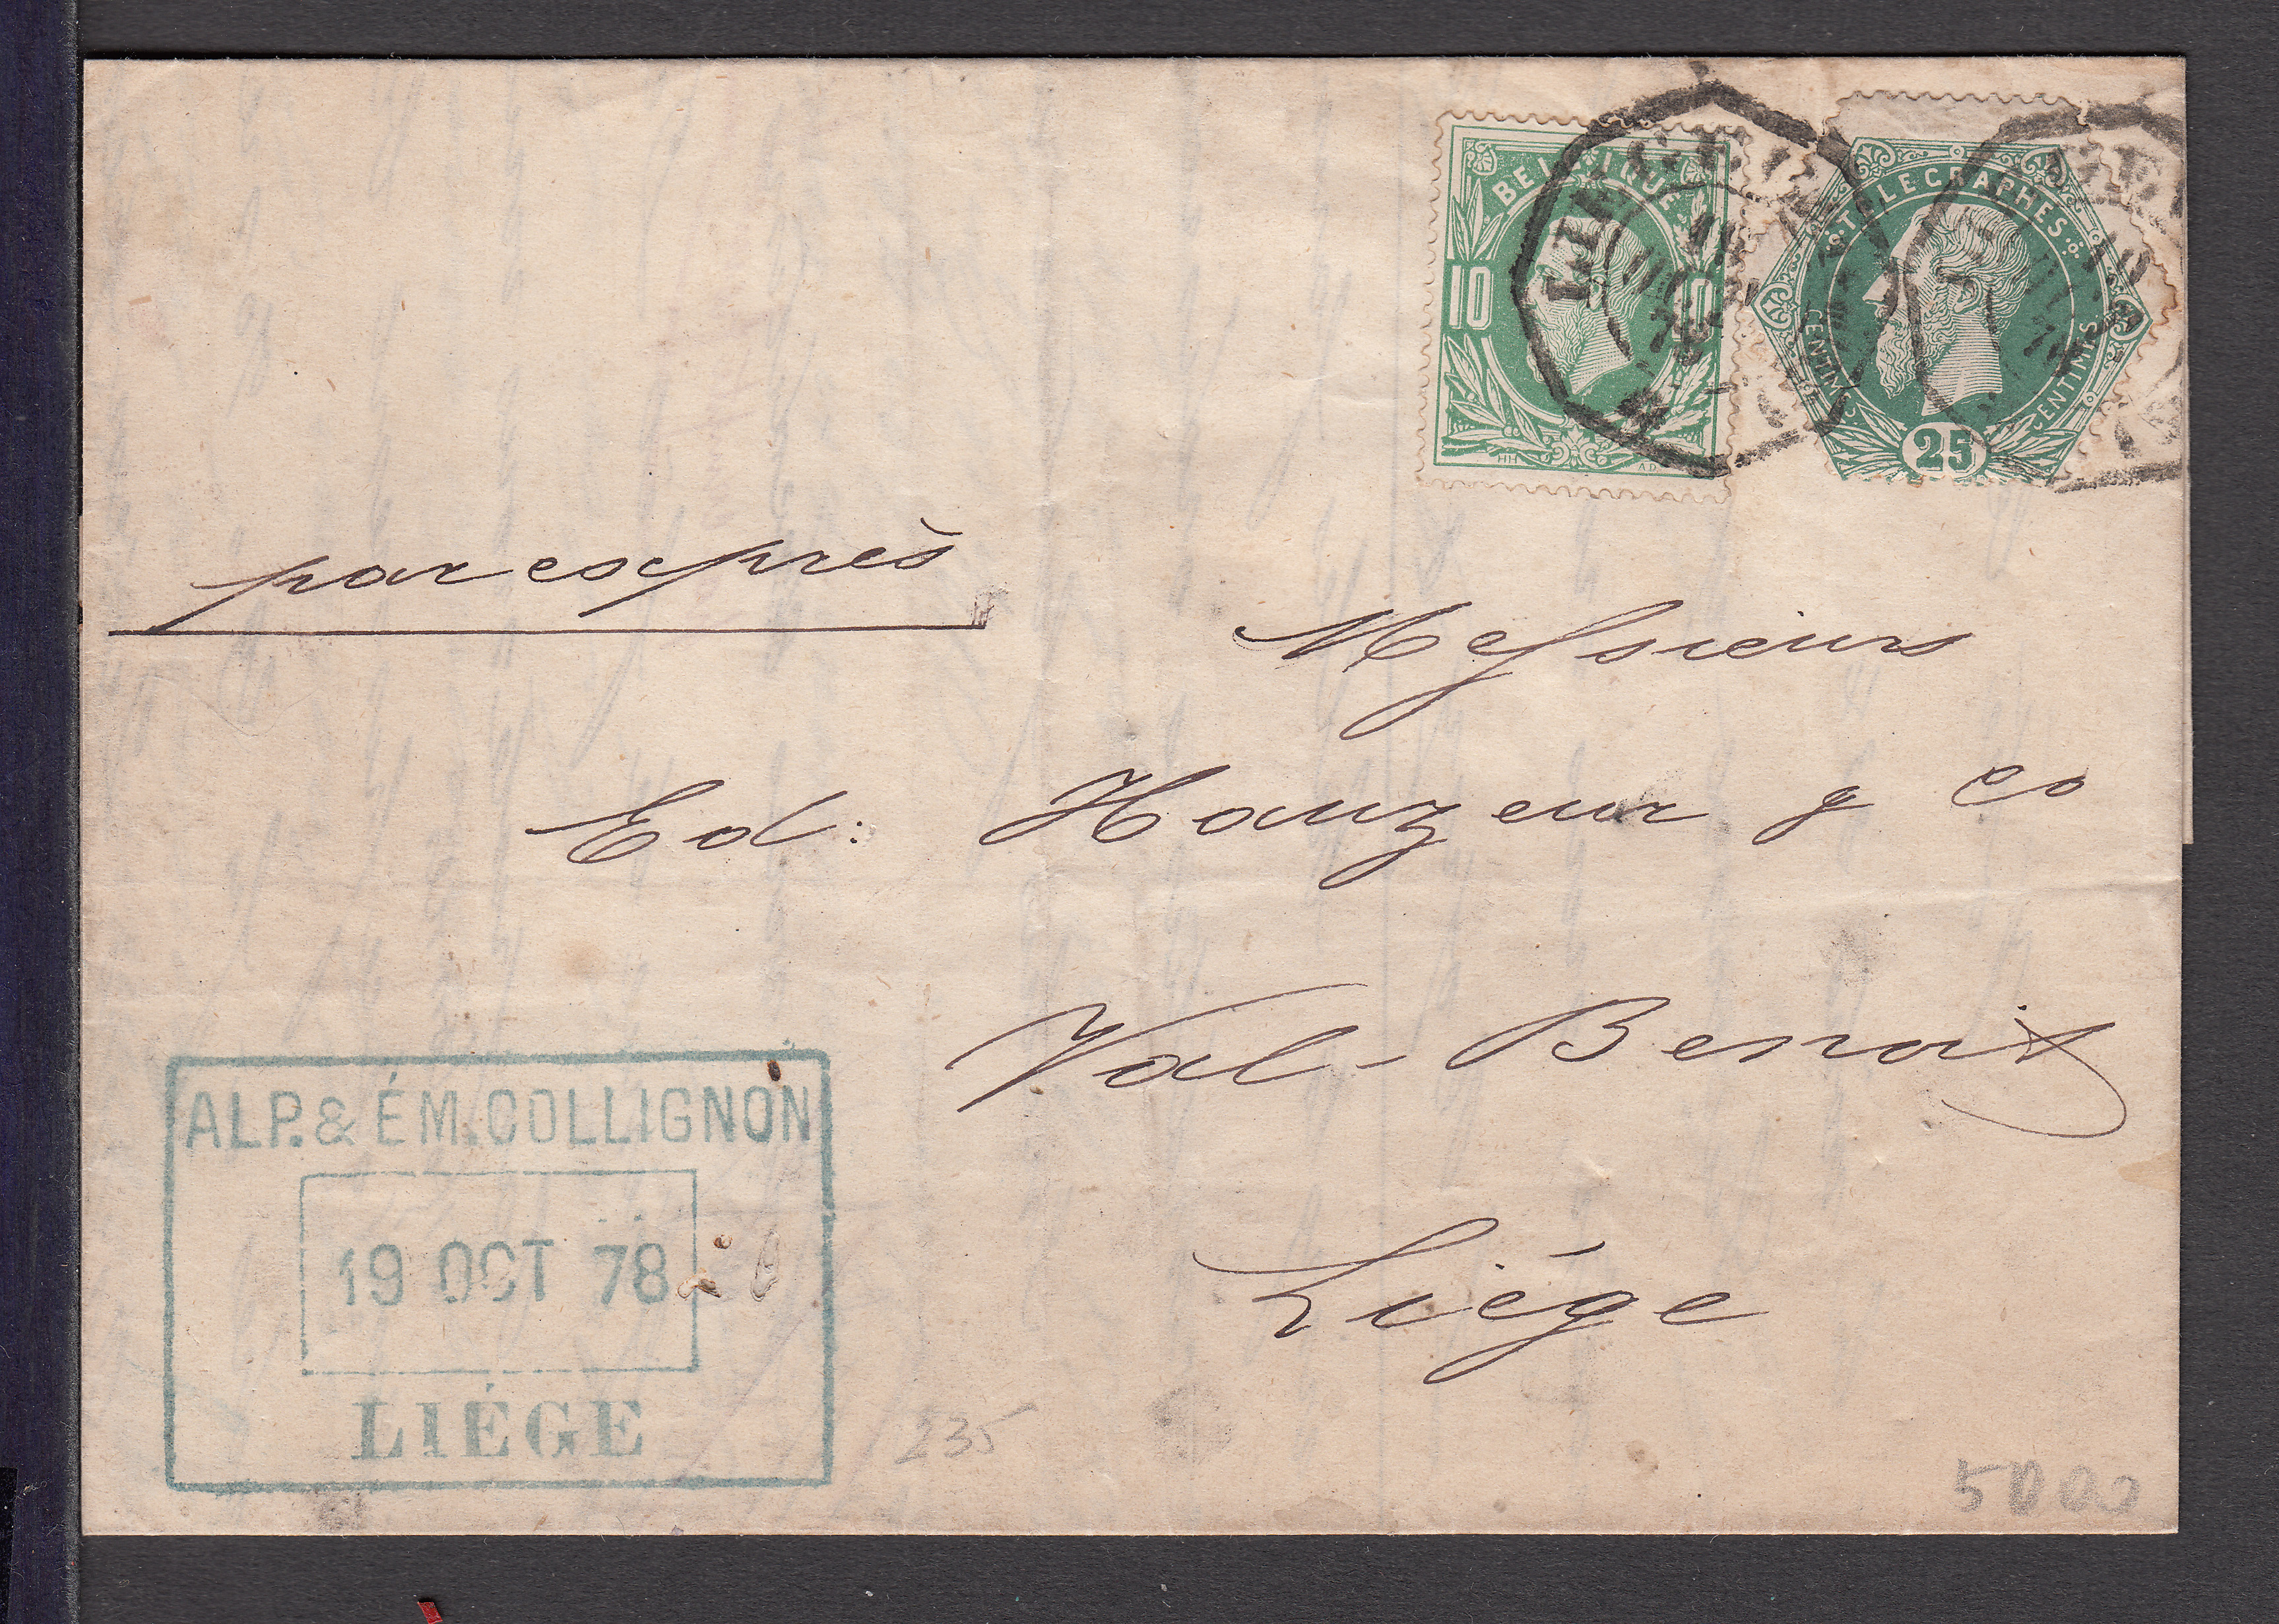 BELGIQUE
10 10
HH A.D
TELEGRAPHES
CENTIMES 25 CENTIMES
par exprès
Messieurs
Ed: Hauzeur & Co
Val-Benoit
Liége
ALP. & ÉM. COLLIGNON
19 OCT 78
LIÉGE
235
5000